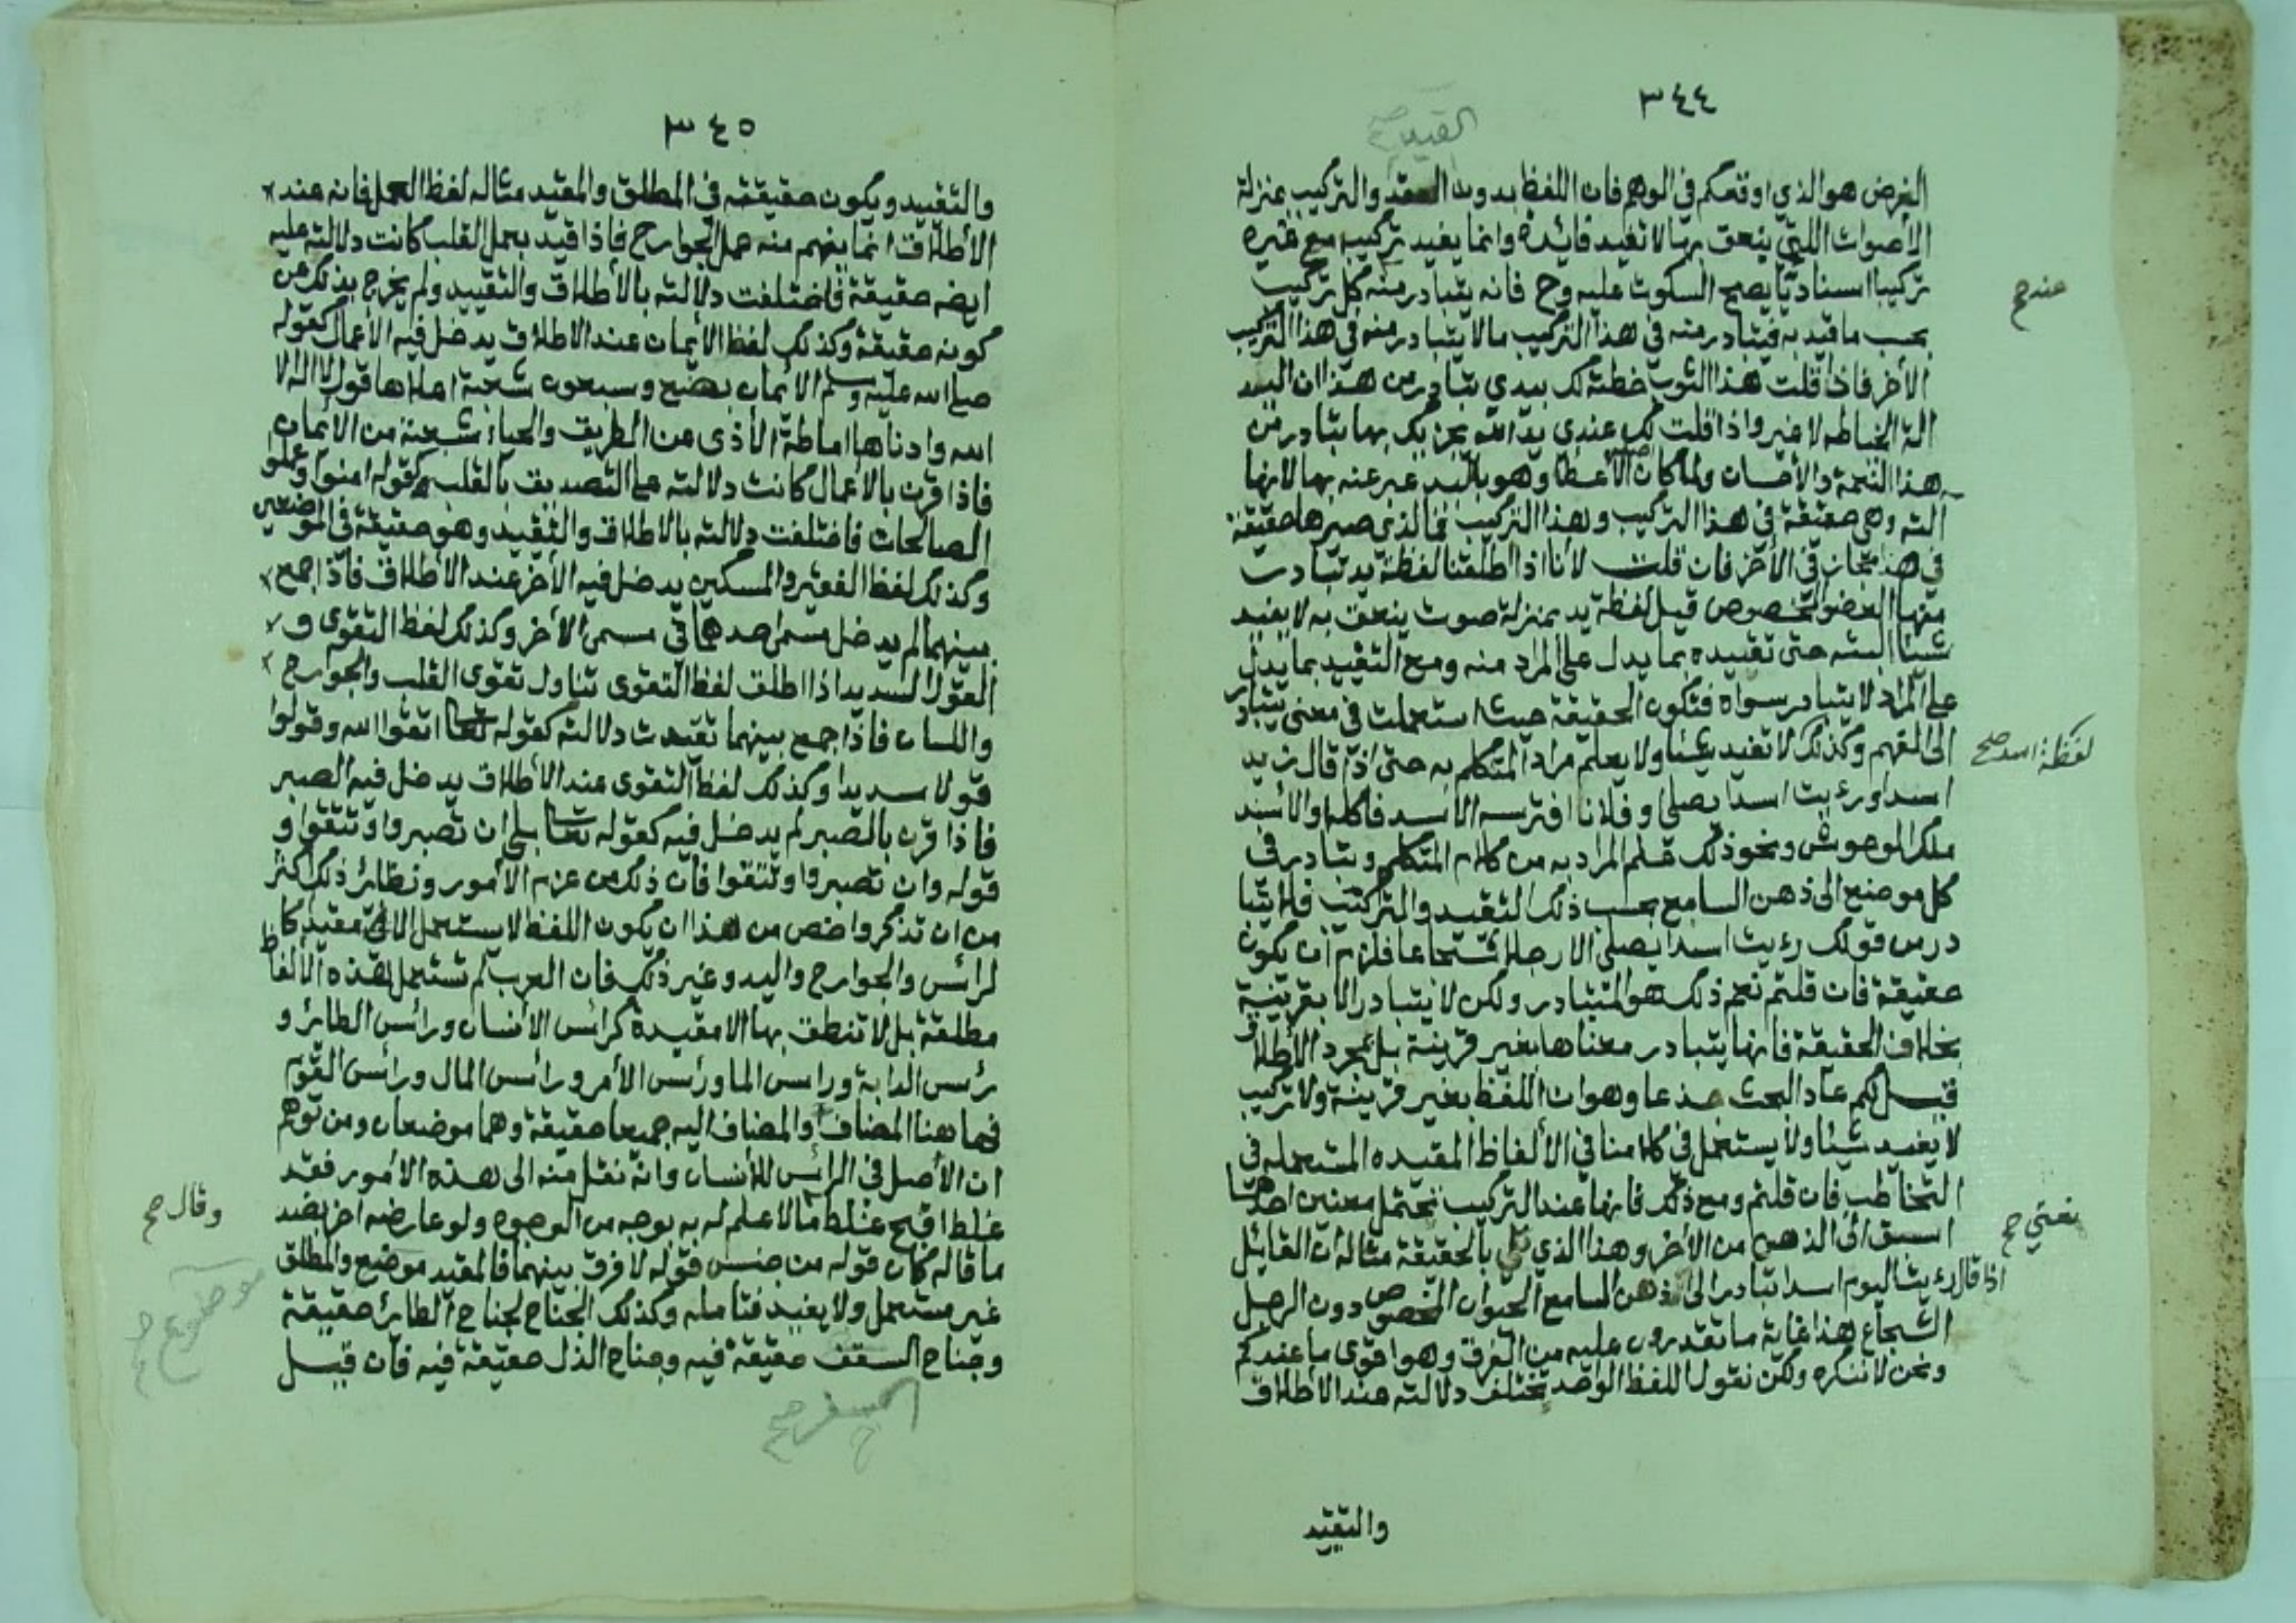 ٣٤٤
القيد صح
الغرض هو الذي اوقعكم في الوهم فان اللفظ بدون العقد والتركيب بمنزلة
الأصوات اللتي ينعق بها لا تفيد فائدة وانما يفيد تركيبه مع غيره
تركيبا اسناديا يصح السكوت عليه وح فانه يتبادر منه كل تركيب
عند صح
بحسب ما قيد به فيتبادر منه في هذا التركيب مالا يتبادر منه في هذا التركيب
الأخر فاذا قلت هذا الثوب خطته لك بيدي تبادر من هذا ان اليد
الة الخياطه لا غير واذا قلت لك عندي يد الله يجزيك بها تبادر من
هذا النعمة والأحسان ولما كان اصل الأعطا وهو باليد عبر عنه بها لانها
الته وهي حقيقة في هذا التركيب وهذا التركيب فما الذي صيرها حقيقة
في هذا مجاز في الأخر فان قلت لأنا اذا اطلقنا لفظة يد تبادرت
منها العضو المخصوص قيل لفظة يد بمنزلة صوت ينعق به لا يفيد
شيئا البته حتى تقييده بما يدل على المراد منه ومع التقييد بما يدل
على المراد لا يتبادر سواه فتكون الحقيقة حيث استعملت في معنى يتبادر
الى الفهم وكذلك لا تفيد شيئا ولا يعلم مراد المتكلم به حتى اذا قال زيد
لفظة اسد صح
اسد او رءيت اسدا يصلي او فلانا افترسه الاسد فاكله او الأسد
ملك الوحوش ونحو ذلك علم المراد به من كلام المتكلم وتبادر في
كل موضع الى ذهن السامع بحسب ذلك التقييد والتركيب فلا يتبا
در من قولك رءيت اسدا يصلي الا رجلا شجاعا فلزم ان يكون
حقيقة فان قلتم نعم ذلك هو المتبادر ولكن لا يتبادر الا بقرينة
بخلاف الحقيقة فانها يتبادر معناها بغير قرينة بل بمجرد الأطلاق
قيل لكم عاد البحث جذعا وهو ان اللفظ بغير قرينة ولا تركيب
لا يفيد شيئا ولا يستعمل في كلامنا في الألفاظ المقيده المستعمله في
التخاطب فان قلتم ومع ذلك فانها عند التركيب تحتمل معنين احدهما
اسبق الى الذهن من الأخر وهذا الذي بالحقيقة مثاله ان القايل
نعني صح
اذا قال رءيت اليوم اسدا تبادر الى ذهن السامع الحيوان المخصوص دون الرجل
الشجاع هذا غاية ما تقدرون عليه من الفرق وهو اقوى ما عندكم
ونحن لا ننكره ولكن نقول اللفظ الواحد تختلف دلالته عند الأطلاق
والتقيد
٣٤٥
والتقييد ويكون حقيقة في المطلق والمقيد مثاله لفظ العمل فانه عند
الأطلاق انما يفهم منه عمل الجوارح فاذا قيد بعمل القلب كانت دلالته عليه
ايضه حقيقة فاختلفت دلالته بالأطلاق والتقييد ولم يخرج بذلك عن
كونه حقيقة وكذلك لفظ الأيمان عند الاطلاق يدخل فيه الأعمال كقوله
صلى الله عليه وسلم الأيمان بضع وسبعون شعبة اعلاها قول لا اله الا
الله وادناها اماطة الأذى من الطريق والحياء شعبة من الأيمان
فاذا قرن بالأعمال كانت دلالته على التصديق بالقلب كقوله امنوا وعملو
الصالحات فاختلفت دلالته بالاطلاق والتقييد وهو حقيقة في الموضعين
وكذلك لفظ الفقير والمسكين يدخل فيه الأخر عند الأطلاق فاذا جمع
بينهما لم يدخل مسمى احدهما في مسمى الأخر وكذلك لفظ التقوى و
القول السديد اذا اطلق لفظ التقوى تناول تقوى القلب والجوارح
واللسان فاذا جمع بينهما تقيدت دلالته كقوله تعالى اتقوا الله وقولوا
قولا سديدا وكذلك لفظ التقوى عند الأطلاق يدخل فيه الصبر
فاذا قرن بالصبر لم يدخل فيه كقوله تعالى بلى ان تصبروا وتتقوا و
قوله وان تصبروا وتتقوا فان ذلك من عزم الأمور ونظائر ذلك اكثر
من ان تذكر واخص من هذا ان يكون اللفظ لا يستعمل الا مقيد كا
لرائس والجوارح واليد وغير ذلك فان العرب لم تستعمل هذه الألفاظ
مطلقة بل لا تنطق بها الا مقيدة كرائس الأنسان ورائس الطائر و
رئس الدابة ورائس الما ورئس الأمر ورائس المال ورائس القوم
فهاهنا المضاف والمضاف اليه جميعا حقيقة وهما موضعان ومن توهم
ان الأصل في الرائس للأنسان وانه نقل منه الى هذه الأمور فقد
غلط اقبح غلط مالا علم له به بوجه من الوجوه ولو عارضه اخر بضد
وقال صح
ما قاله كان قوله من جنس قوله لا فرق بينهما فالمقيد موضع والمطلق
موضوع صح
غير مستعمل ولا يفيد فتامله وكذلك الجناح لجناح الطائر حقيقة
وجناح السقف حقيقة فيه وجناح الذل حقيقة فيه فان قيل
السفر صح